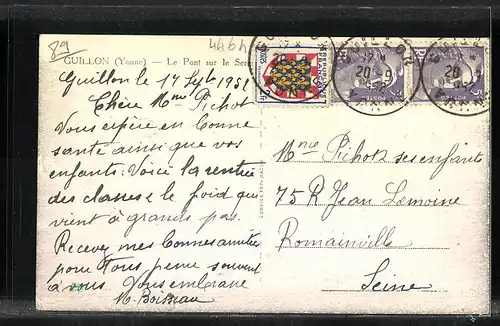 89
4464
GUILLON (Yonne) — Le Pont sur le Sere
Guillon le 17 Sept 1951
Chère Mme Pichot
Vous espère en bonne
santé ainsi que vos
enfants. Voici la rentrée
des classes le froid qui
vient à grands pas.
Recevez mes bonnes amitiés
pour tous pense souvent
à vous Vous embrasse
M. Boisseau
Mme Pichot & ses enfants
75 R Jean Lemoine
Romainville
Seine
GUILLON
YONNE
20 -9